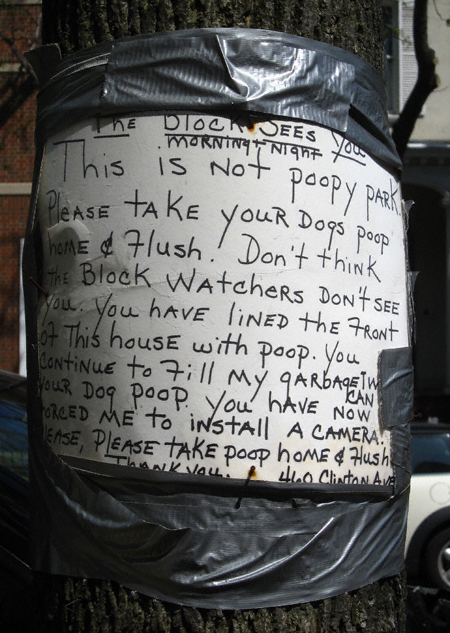 The Block Sees you
morning + night
This is not poopy park.
Please take your dogs poop
home & flush. Don't think
the Block Watchers don't see
you. You have lined the front
of this house with poop. You
continue to fill my garbage
can
your dog poop. You have now
forced me to install a camera.
Please, please take poop home & flush
Thank you. 460 Clinton Ave